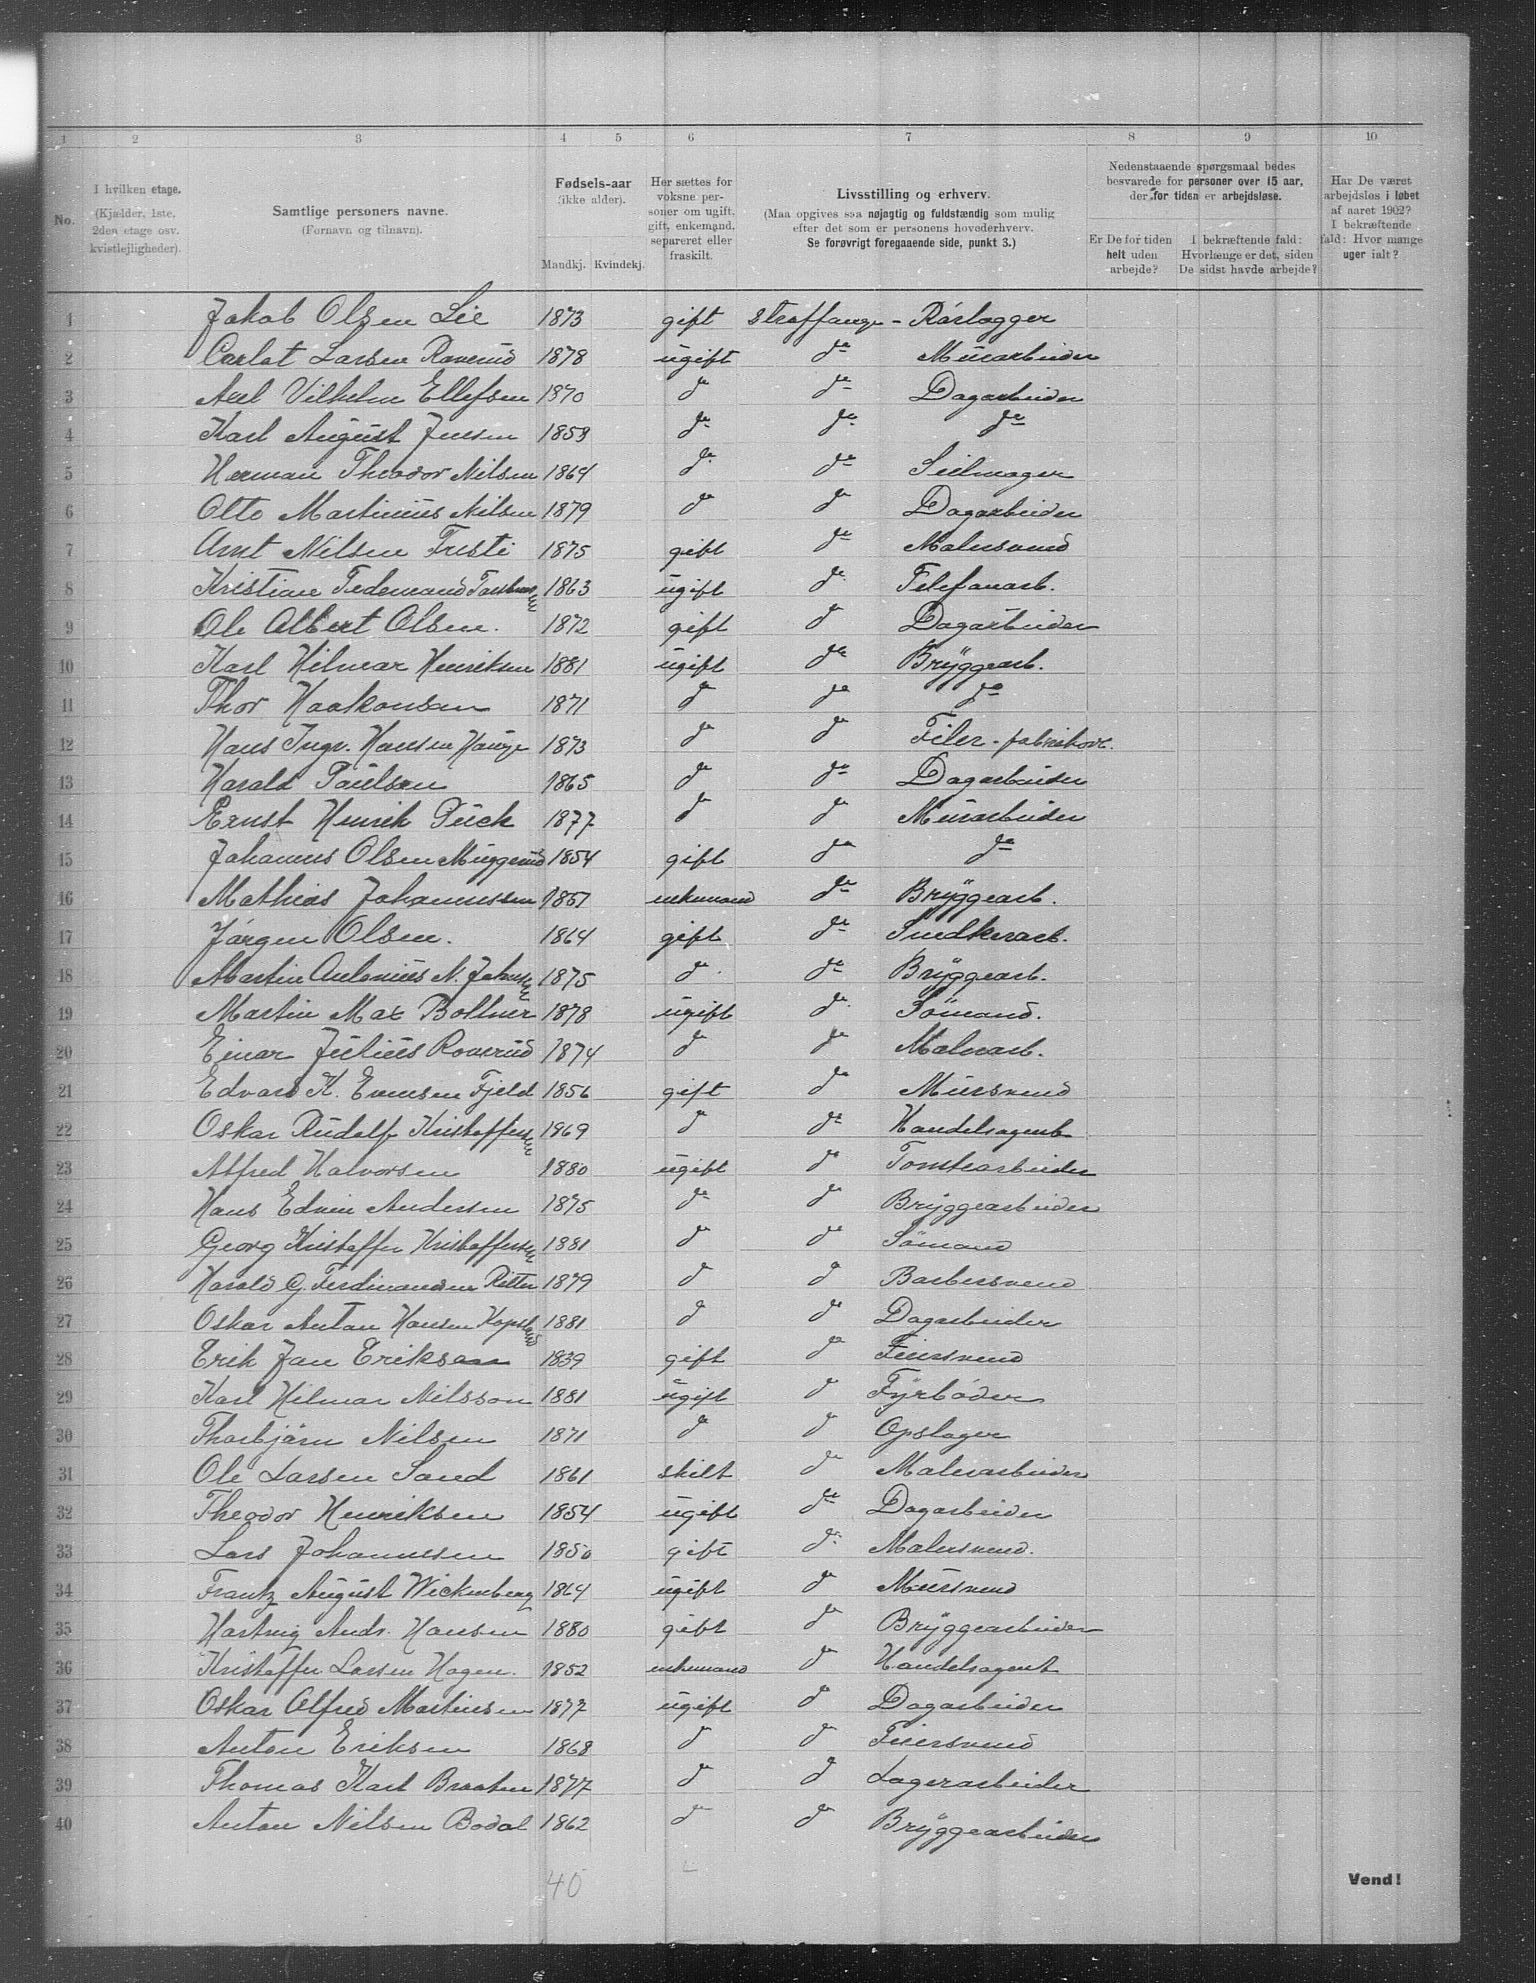 1 2 3 4 5 6 7 8 9 10
No.
I hvilken etage.
(Kjælder, 1ste, 2den etage osv. kvistlejligheder).
Samtlige personers navne.
(Fornavn og tilnavn).
Fødsels-aar
(ikke alder).
Mandkj. Kvindekj.
Her sættes for voksne personer om ugift, gift, enkemand, separeret eller fraskilt.
Livsstilling og erhverv.
(Maa opgives saa nøjagtig og fuldstændig som mulig efter det som er personens hovederhverv.
Se forøvrigt foregaaende side, punkt 3.)
Nedenstaaende spørgsmaal bedes besvarede for personer over 15 aar, der for tiden er arbejdsløse.
Er De for tiden helt uden arbejde?
I bekræftende fald: Hvorlænge er det, siden De sidst havde arbejde?
Har De været arbejdsløs i løbet af aaret 1902?
I bekræftende fald: Hvor mange uger ialt?
1 Jakob Olsen Lie 1873 gift straffange - Rörlægger
2 Carlot Larsen Roverud 1878 ugift do Murarbeider
3 Axel Vilhelm Ellefsen 1870 do do Dagarbeider
4 Karl August Jensen 1853 do do do
5 Herman Theodor Nilsen 1864 do do Seilmager
6 Otto Martinius Nilsen 1879 do do Dagarbeider
7 Arnt Nilsen Trusti 1875 gift do Malersvend
8 Kristian Tedemand 1863 ugift do Telefonarb.
9 Ole Albert Olsen. 1872 gift do Dagarbeider
10 Karl Hilmar Henriksen 1881 ugift do Bryggearb.
11 Thor Haakonsen 1871 do do do
12 Hans Ingv. Hansen Hauge 1873 do do Filer - fabrikarb.
13 Harald Paulsen 1865 do do Dagarbeider
14 Ernst Henrik Puck 1877 do do Murarbeider
15 Johannes Olsen Muggerud 1854 gift do do
16 Mathias Johannessen 1851 enkemand do Bryggearb.
17 Jörgen Olsen. 1864 gift do Snedkerarb.
18 Martin Antonius N. Johnsen 1875 do do Bryggearb.
19 Martin Max Boltner 1878 ugift do Sömand.
20 Einar Julius Roverud 1874 do do Malerarb.
21 Edvard K. Evensen Fjeld 1856 gift do Mursvend
22 Oskar Rudolf Kristoffersen 1869 do do Handelsagent
23 Alfred Halvorsen 1880 ugift do Tomtearbeider
24 Hans Edvin Andersen 1875 do do Bryggearbeider
25 Georg Kristoffer Kristoffersen 1881 do do Sömand
26 Harald G. Ferdinandsen Ritter 1879 do do Barbersvend
27 Oskar Anton Hansen Kopstad 1881 do do Dagarbeider
28 Erik Jan Eriksson 1839 gift do Feiersvend
29 Karl Hilmar Nilsson 1881 ugift do Fyrböder
30 Thorbjörn Nilsen 1871 do do Opslager
31 Ole Larsen Sand 1861 skilt do Malerarbeider
32 Theodor Henriksen 1854 ugift do Dagarbeider
33 Lars Johannesen 1850 gift do Malersvend.
34 Frantz August Wickenberg 1864 ugift do Mursvend
35 Hartvig Andr. Hansen 1880 gift do Bryggearbeider
36 Kristoffer Larsen Hagen. 1852 enkemand do Handelsagent
37 Oskar Alfred Martinsen 1877 ugift do Dagarbeider
38 Anton Eriksen 1868 do do Feiersvend
39 Thomas Karl Braaten 1877 do do Lagerarbeider
40 Anton Nilsen Bodal 1862 do do Bryggearbeider
40
Vend!